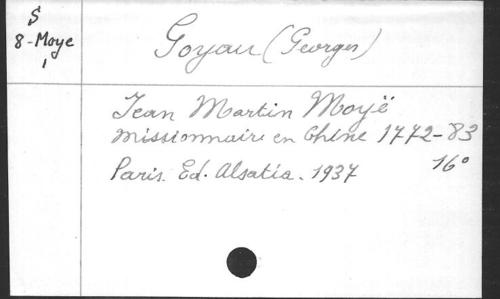 S
8-Moye
1
Goyau (Georges)
Jean Martin Moyë
missionnaire en Chine 1772-83
Paris. Ed. Alsatia. 1937 16°